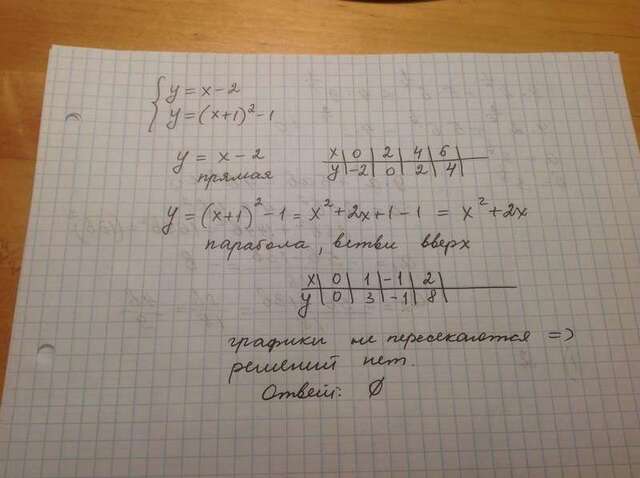 y = x-2
y = (x+1)²-1
y = x-2
прямая
x 0 2 4 6
y -2 0 2 4
y = (x+1)²-1 = x²+2x+1-1 = x²+2x
парабола, ветви вверх
x 0 1 -1 2
y 0 3 -1 8
графики не пересекаются =>
решений нет.
Ответ: ∅